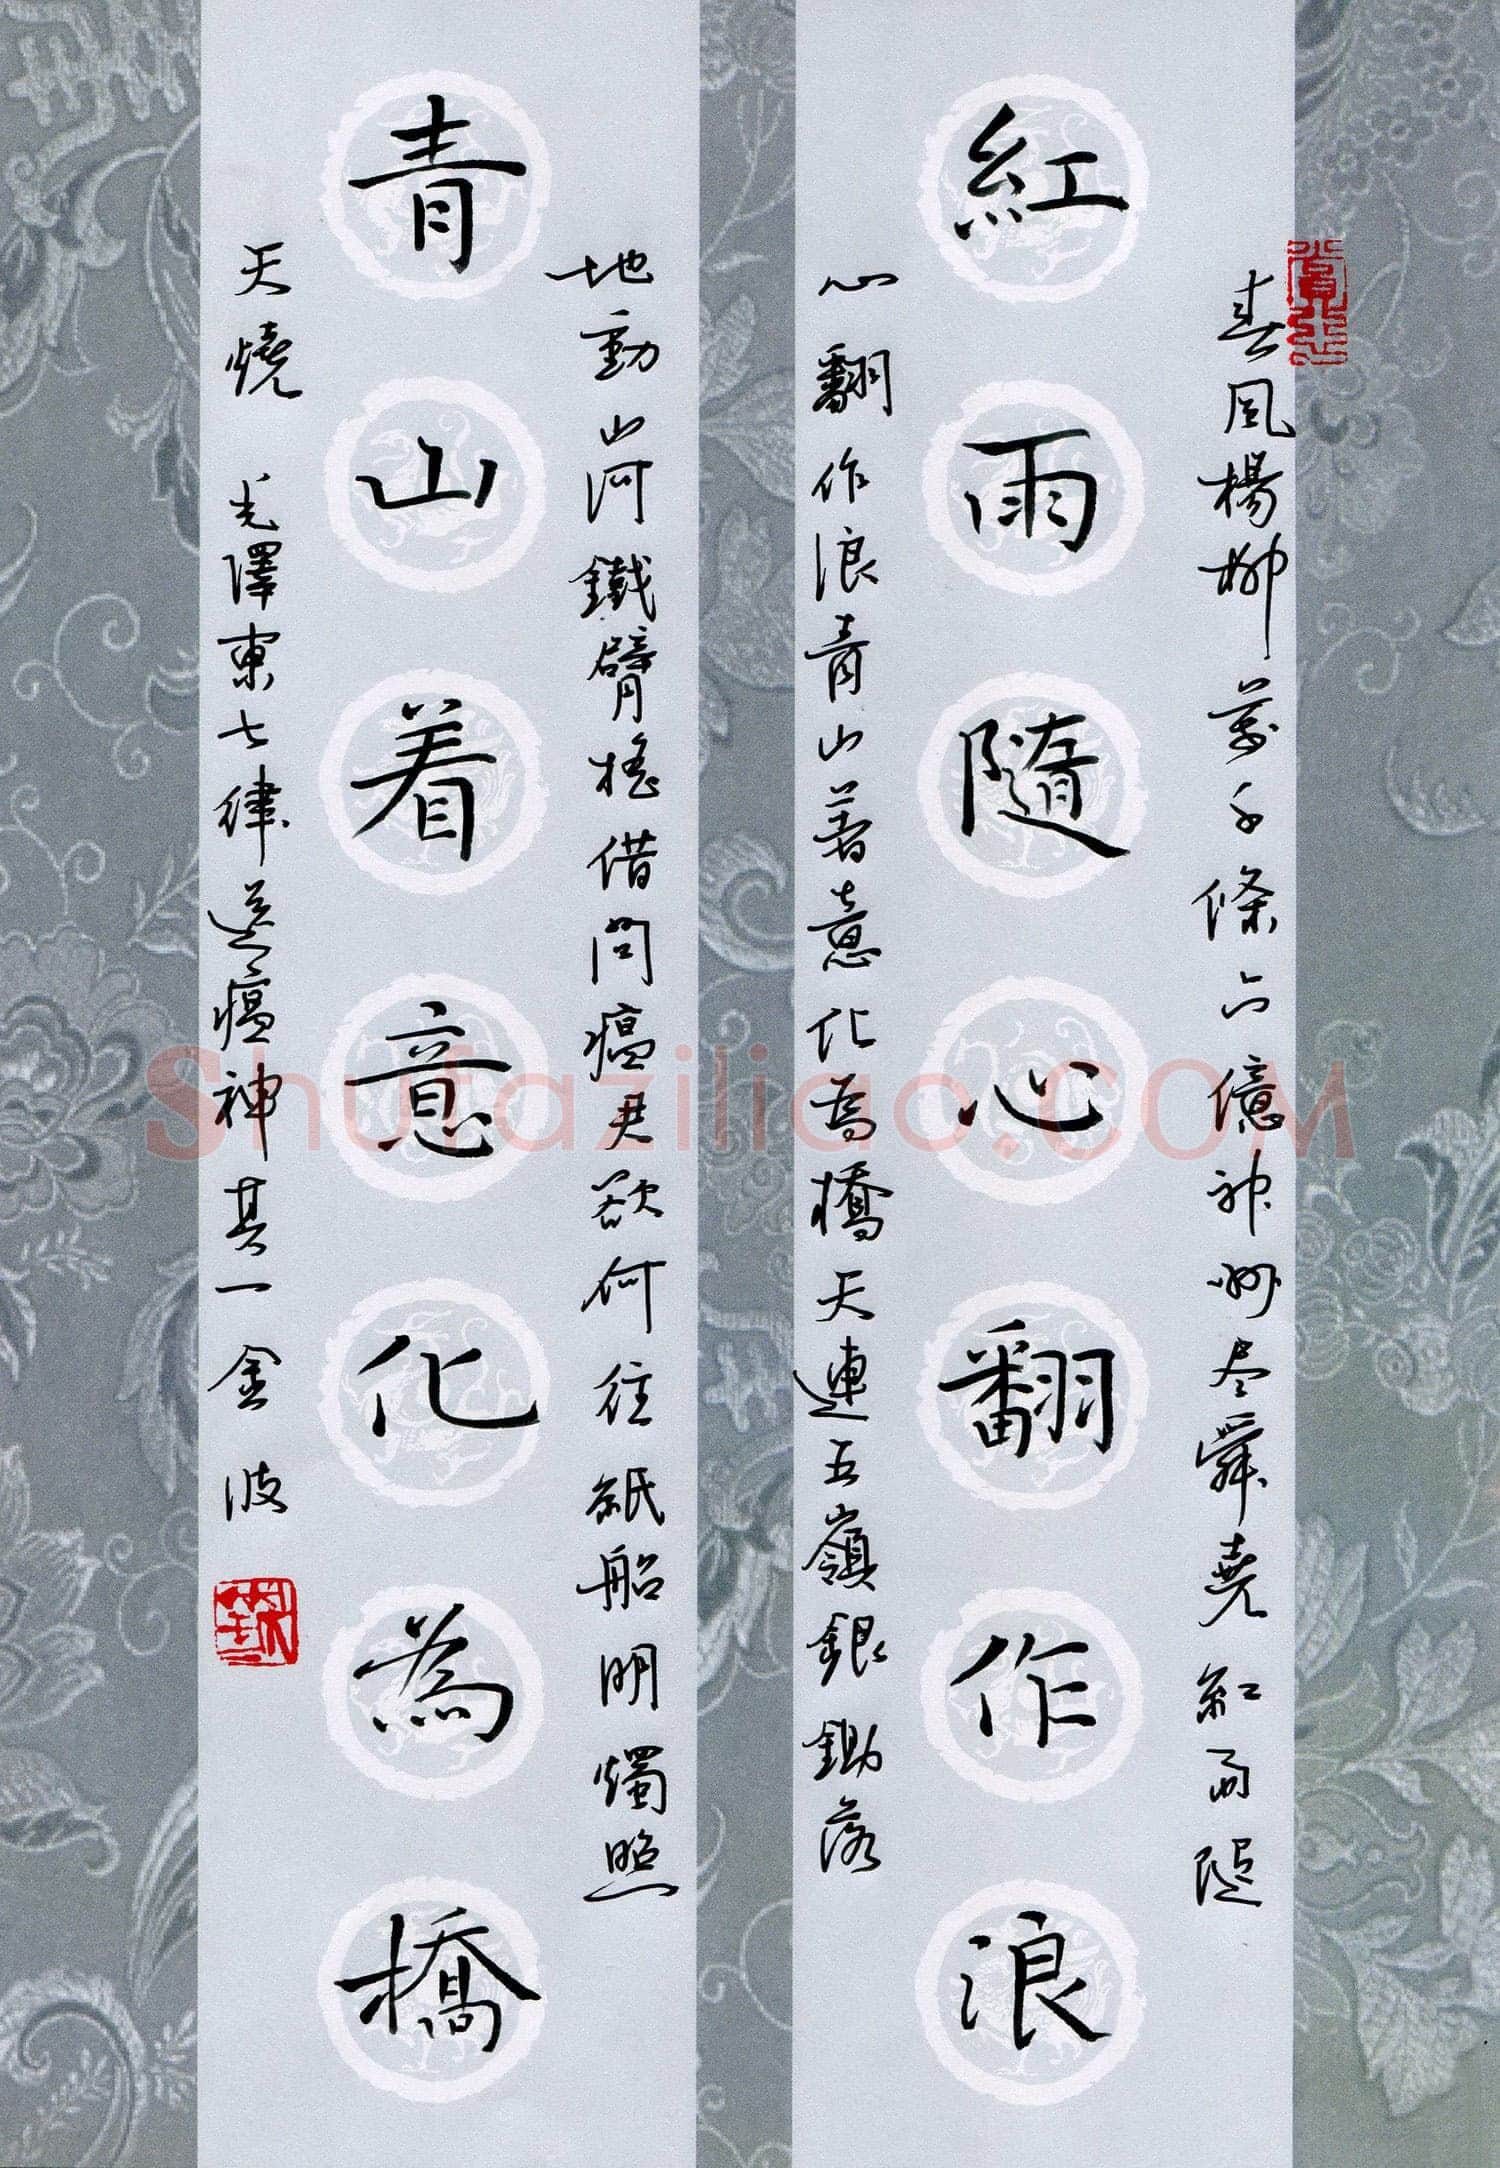 紅雨隨心翻作浪
春風楊柳萬千條六億神州尽舜堯紅雨隨
心翻作浪青山著意化為橋天連五嶺銀鋤落
青山着意化為橋
地動山河鐵臂搖借問瘟君欲何往紙船明燭照
天燒 毛澤東七律送瘟神其一金波
Shufaziliao.COM